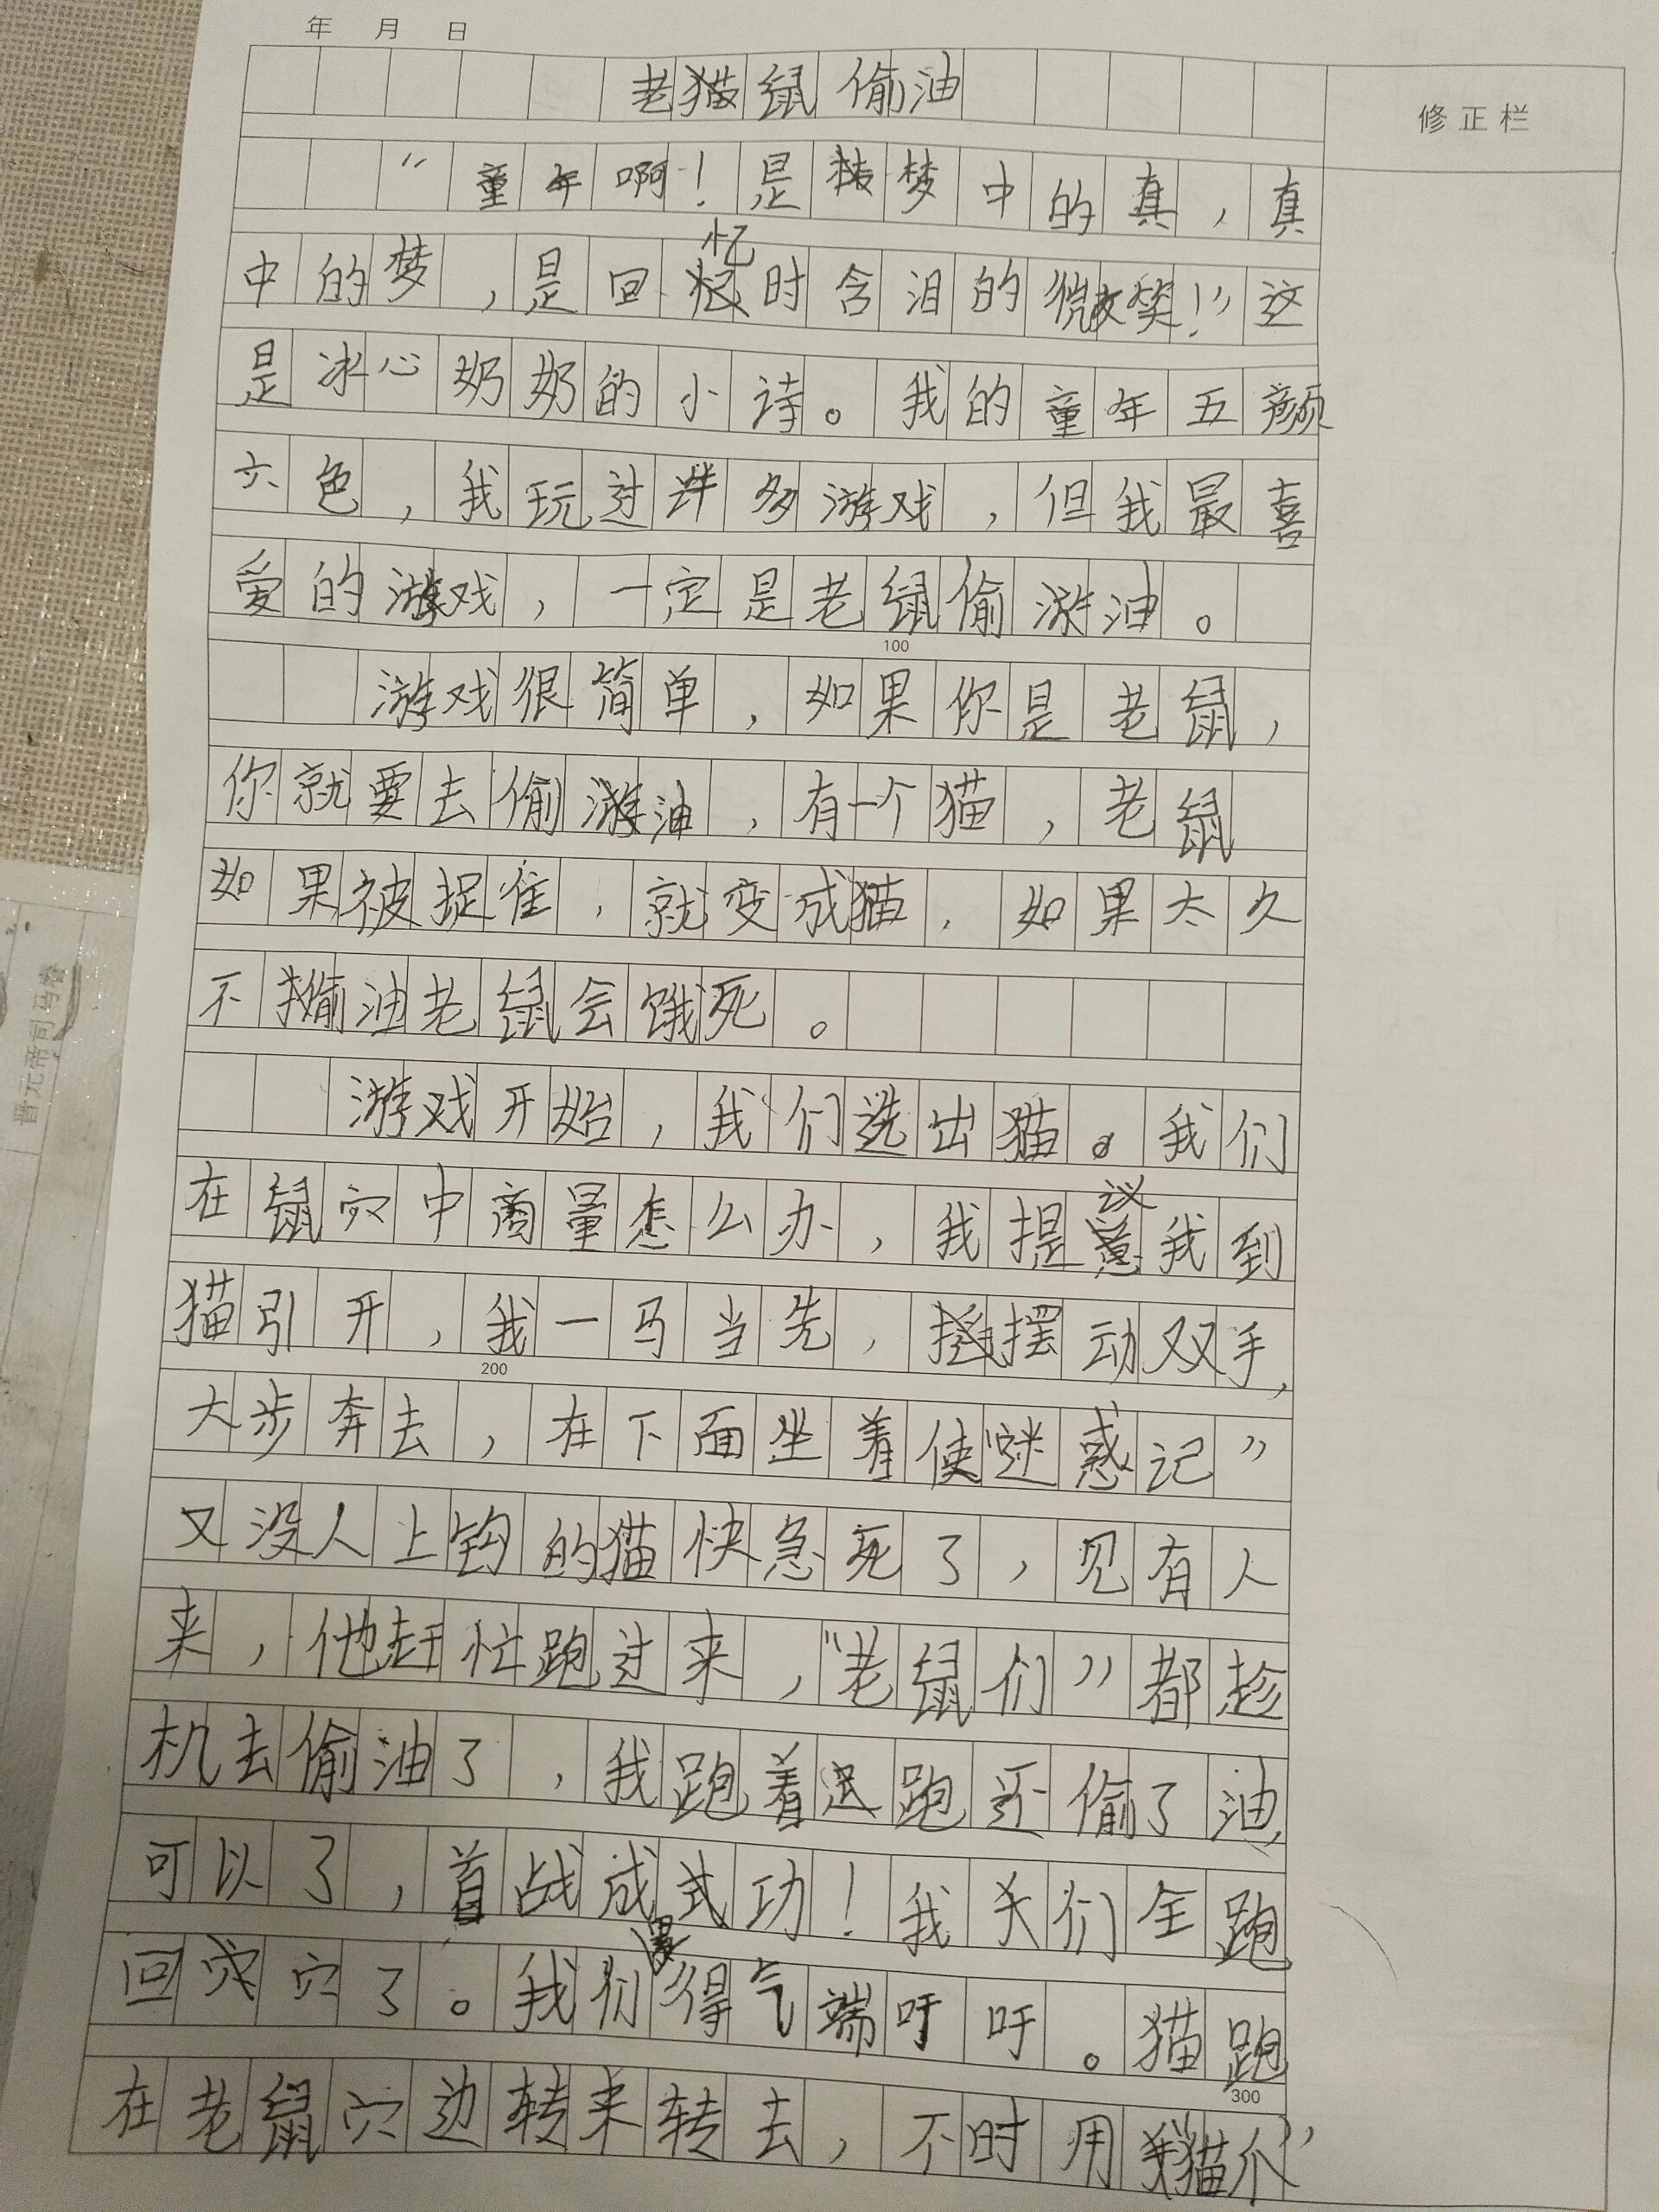 年 月 日
老鼠偷油
修正栏
“童年啊！是梦中的真，真
中的梦，是回忆时含泪的微笑！”这
是冰心奶奶的小诗。我的童年五颜
六色，我玩过许多游戏，但我最喜
爱的游戏，一定是老鼠偷油。
100
游戏很简单，如果你是老鼠，
你就要去偷油，有一个猫，老鼠
如果被捉住，就变成猫，如果太久
不偷油老鼠会饿死。
游戏开始，我们选出猫。我们
在鼠穴中商量怎么办，我提议我到
猫引开，我一马当先，摆动双手，
200
大步奔去，在下面坐着使“迷惑记”
又没人上钩的猫快急死了，见有人
来，他赶忙跑过来，“老鼠们”都趁
机去偷油了，我跑着跑还偷了油，
可以了，首战成功！我们全跑
回穴了。我们累得气喘吁吁。猫跑
300
在老鼠穴边转来转去，不时用“猫爪”
晋元帝司马睿